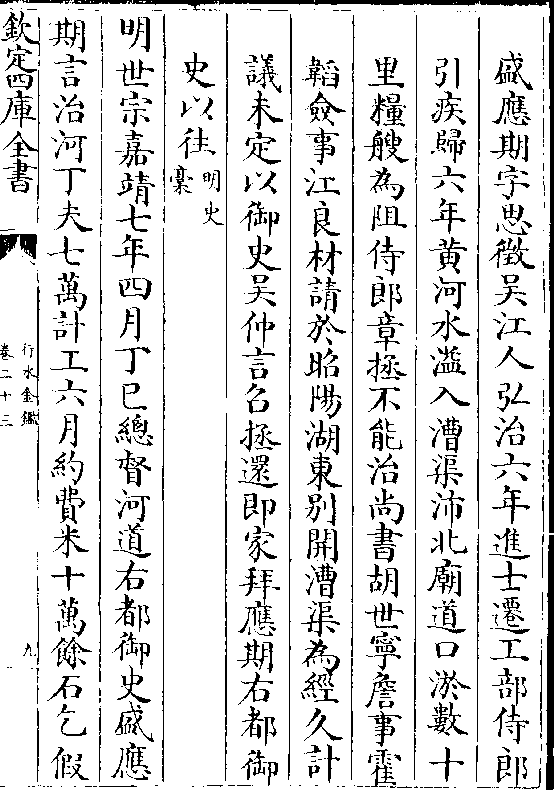 盛應期字思徵吳江人弘治六年進士遷工部侍郎
引疾歸六年黄河水溢入漕渠沛北廟道口淤數十
里糧艘為阻侍郎章拯不能治尚書胡世寧詹事霍
韜僉事江良材請於昭陽湖東别開漕渠為經久計
議未定以御史吴仲言召拯還即家拜應期右都御
史以往明史
槀
明世宗嘉靖七年四月丁巳總督河道右都御史盛應
期言治河丁夫七萬計工六月約費米十萬餘石乞假
欽定四庫全書
行水金鑑
卷二十三
九